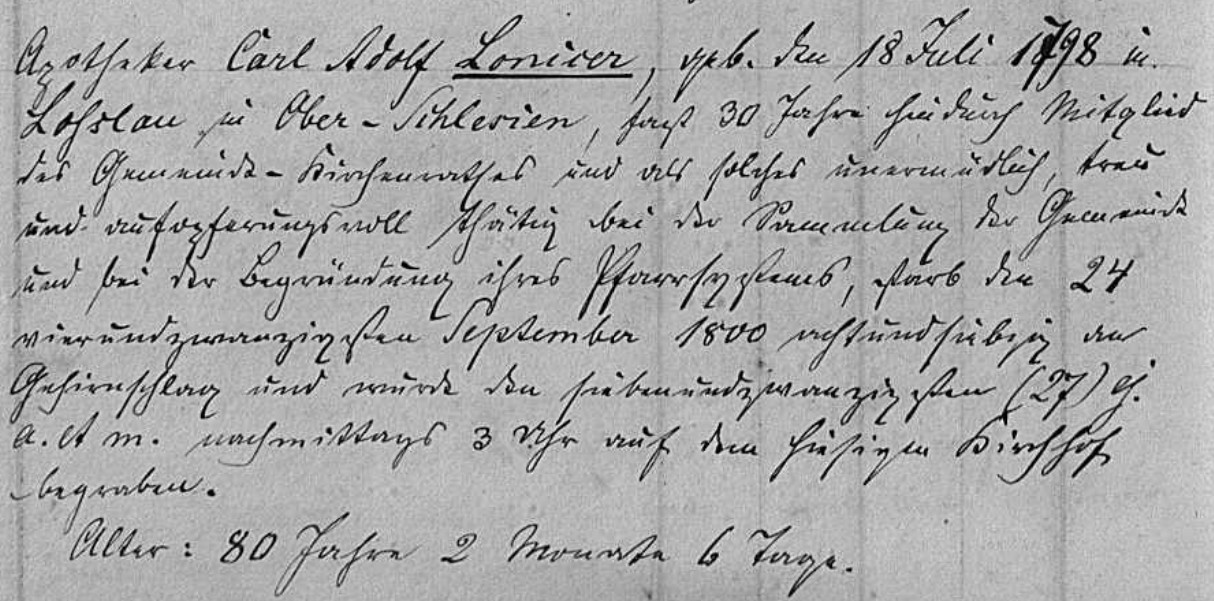 Apotheker Carl Adolf Lonicer, geb. den 18 Juli 1798 in
Loslau in Ober-Schlesien, fast 30 Jahre hindurch Mitglied
des Gemeinde-Kirchenrathes und als solches unermüdlich, treu
und aufopferungsvoll thätig bei der Sammlung der Gemeinde
und bei der Begründung ihres Pfarrsystems, starb den 24
vierundzwanzigsten September 1800 achtundsiebzig am
Gehirnschlag und wurde den siebenundzwanzigsten (27) ej.
a. et m. nachmittags 3 Uhr auf dem hiesigen Kirchhof
begraben.
Alter: 80 Jahre 2 Monate 6 Tage.